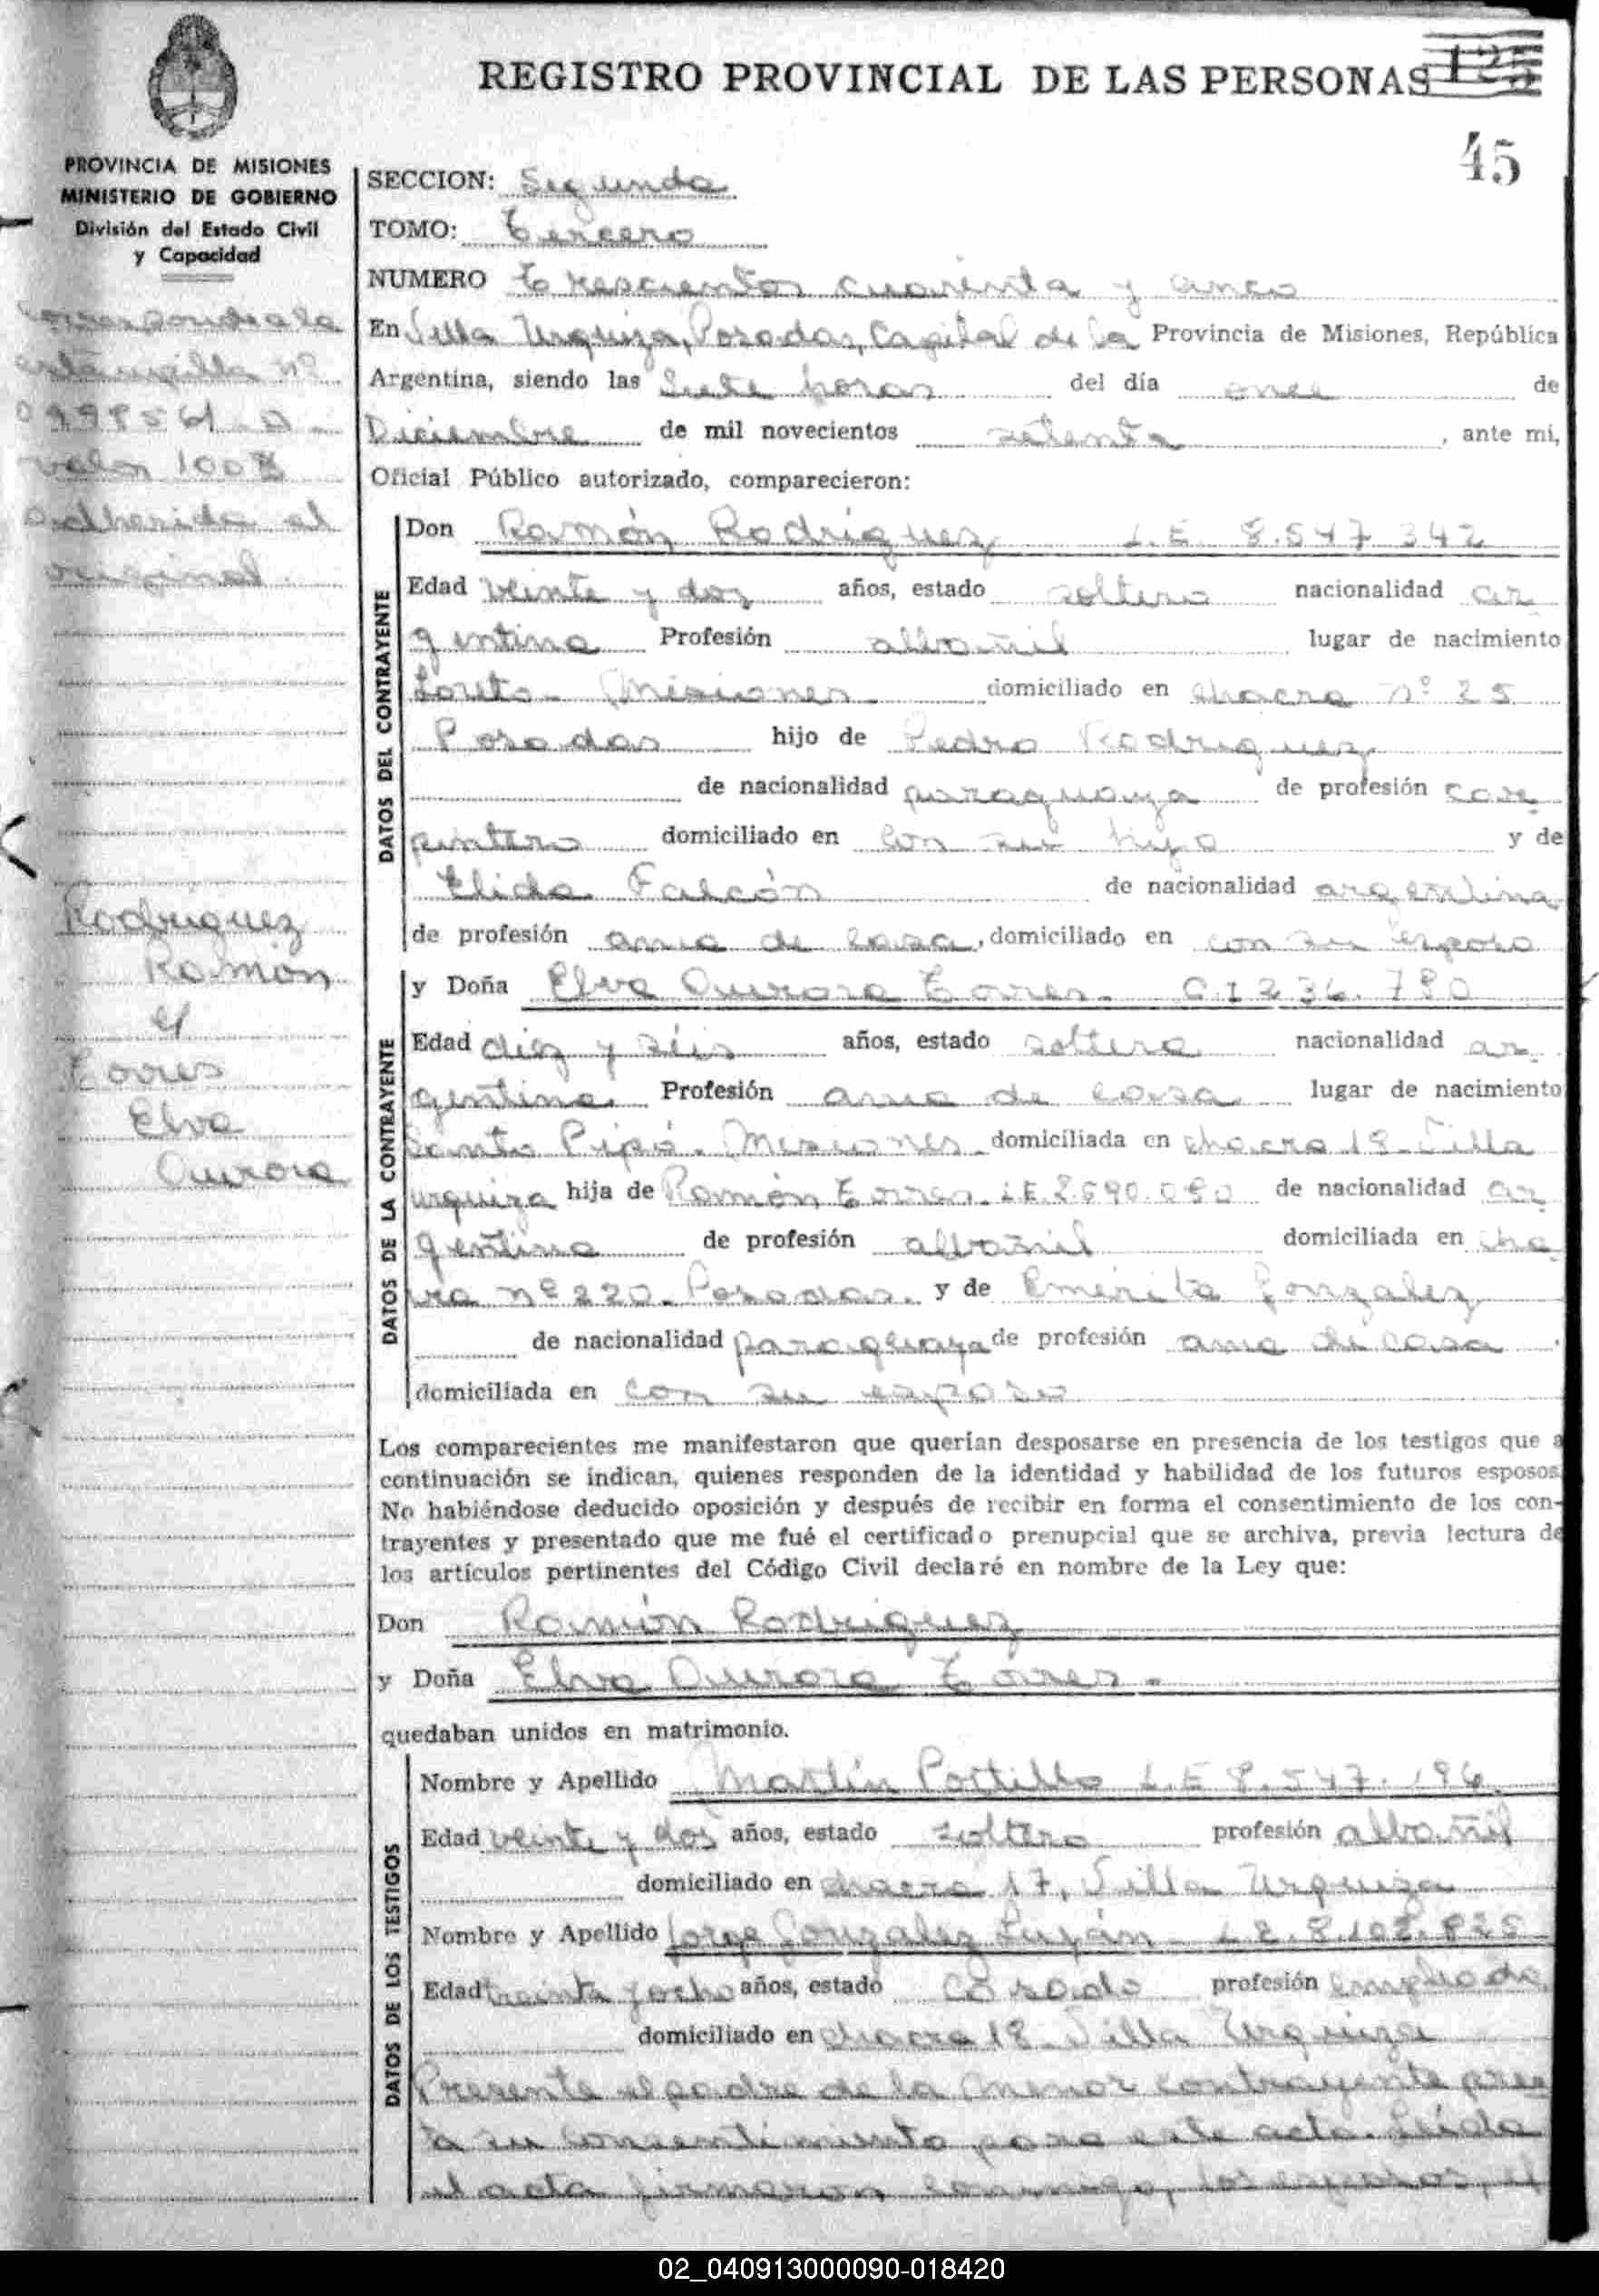 REGISTRO PROVINCIAL DE LAS PERSONAS
45
PROVINCIA DE MISIONES
MINISTERIO DE GOBIERNO
División del Estado Civil
y Capacidad
Corresponde a la
estampilla nº
valor 100 $
adherida al
original.
Rodriguez
Ramón
y
Torres
Elva
Aurora
SECCION: Segunda
TOMO: Tercero
NUMERO Trescientos cuarenta y cinco
En Villa Urquiza, Posadas, Capital de la Provincia de Misiones, República
Argentina, siendo las siete horas del día once de
Diciembre de mil novecientos setenta, ante mi,
Oficial Público autorizado, comparecieron:
DATOS DEL CONTRAYENTE
Don Ramón Rodríguez L.E. 8.547.342
Edad veinte y dos años, estado soltero nacionalidad ar
gentina Profesión albañil lugar de nacimiento
Loreto - Misiones - domiciliado en chacra nº 25
Posadas hijo de Pedro Rodriguez
de nacionalidad paraguaya de profesión car
pintero domiciliado en con su hijo y de
Elida Falcón de nacionalidad argentina
de profesión ama de casa, domiciliado en con su esposo
DATOS DE LA CONTRAYENTE
y Doña Elva Aurora Torres - C.I 236.780
Edad diez y séis años, estado soltera nacionalidad ar
gentina Profesión ama de casa lugar de nacimiento
Santo Pipó. Misiones - domiciliada en chacra 18 - Villa
Urquiza hija de Ramón Torres - L.E. de nacionalidad ar
gentina de profesión albañil domiciliada en cha
cra nº 220 - Posadas. y de Emérita Gonzalez
de nacionalidad paraguaya de profesión ama de casa
domiciliada en con su esposo
Los comparecientes me manifestaron que querían desposarse en presencia de los testigos que a
continuación se indican, quienes responden de la identidad y habilidad de los futuros esposos
No habiéndose deducido oposición y después de recibir en forma el consentimiento de los con-
trayentes y presentado que me fué el certificado prenupcial que se archiva, previa lectura de
los artículos pertinentes del Código Civil declaré en nombre de la Ley que:
Don Ramón Rodriguez
y Doña Elva Aurora Torres -
quedaban unidos en matrimonio.
DATOS DE LOS TESTIGOS
Nombre y Apellido Martín Portillo L.E 8.547.196
Edad veinte y dos años, estado soltero profesión albañil
domiciliado en chacra 17, Villa Urquiza
Nombre y Apellido Jorge Gonzalez Luján - L.E.
Edad treinta y ocho años, estado casado profesión empleado
domiciliado en chacra 18 - Villa Urquiza
Presente el padre de la menor contrayente pres
ta su consentimiento para este acto. Leída
el acta firmaron conmigo, los esposos, el
02_040913000090-018420